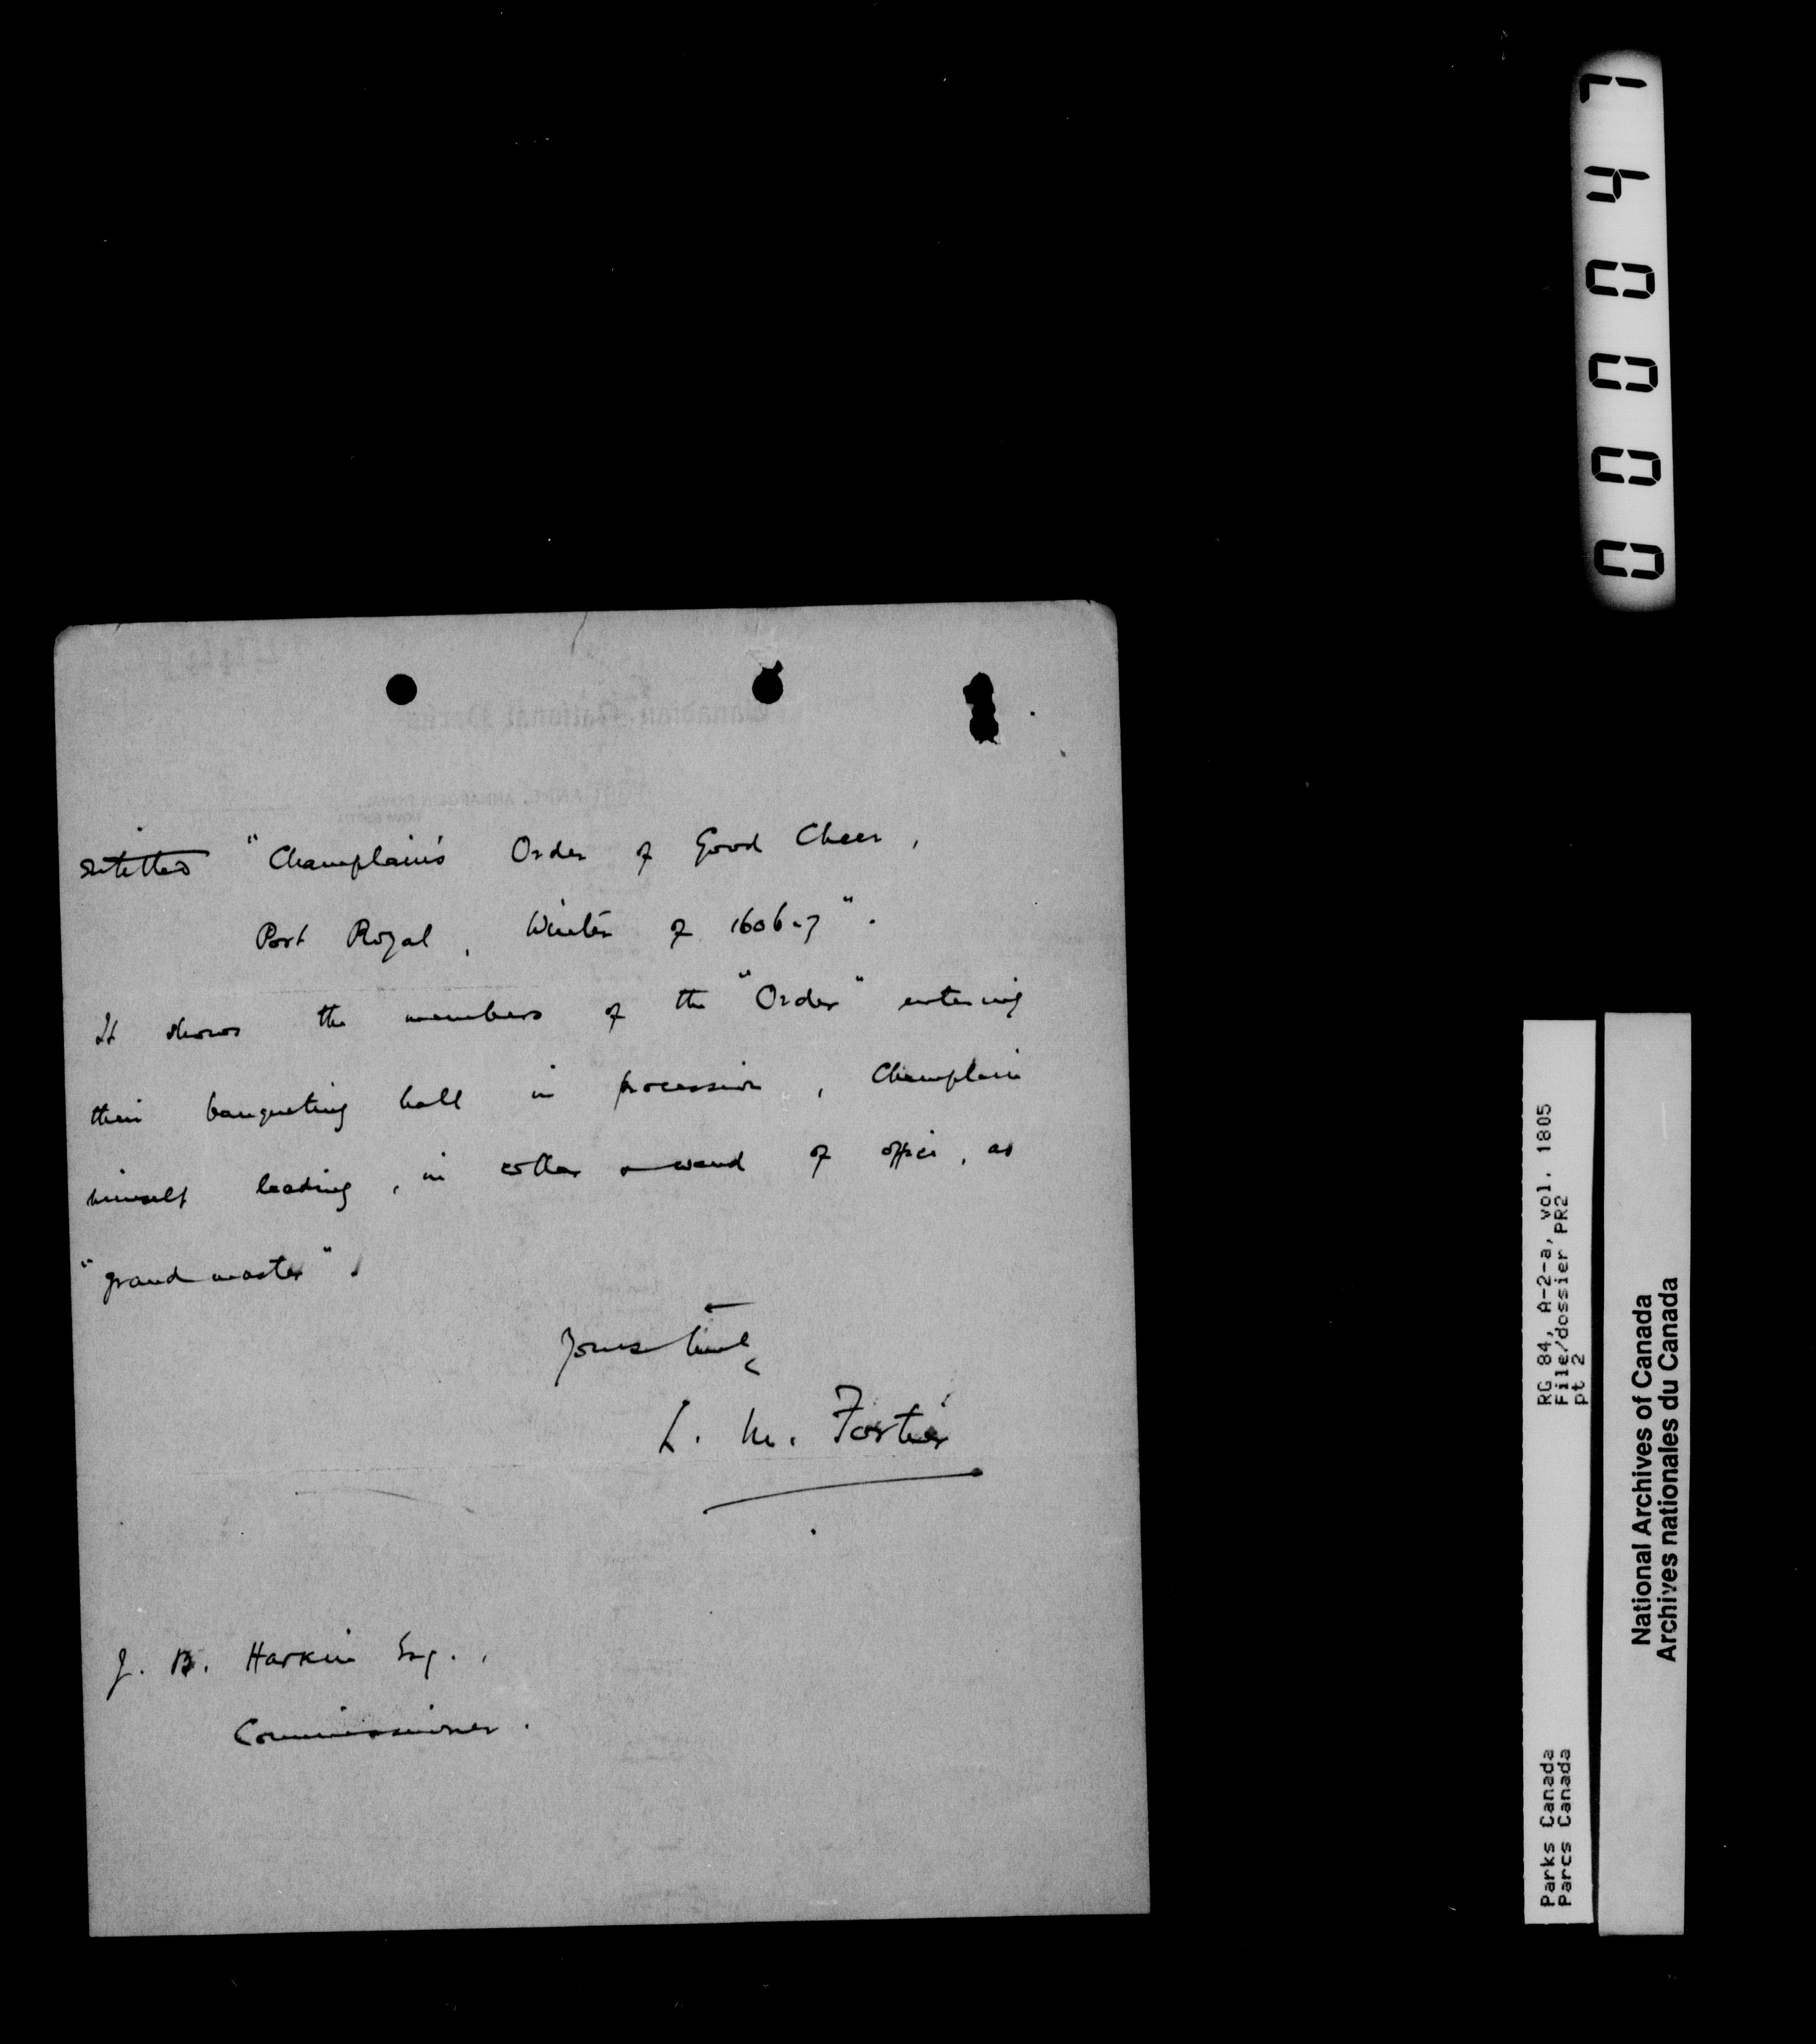 entitled "Champlain's Order of Good Cheer,
Port Royal, Winter of 1606-7".
It shows the members of the "Order" entering
their banqueting hall in procession, Champlain
himself leading, in collar & wand of office, as
"grand master".
Yours truly
L. M. Fortier
J. B. Harkin Esq.,
Commissioner.
000047
RG 84, A-2-a, vol. 1805
File/dossier PR2
pt 2
Parks Canada
Parcs Canada
National Archives of Canada
Archives nationales du Canada